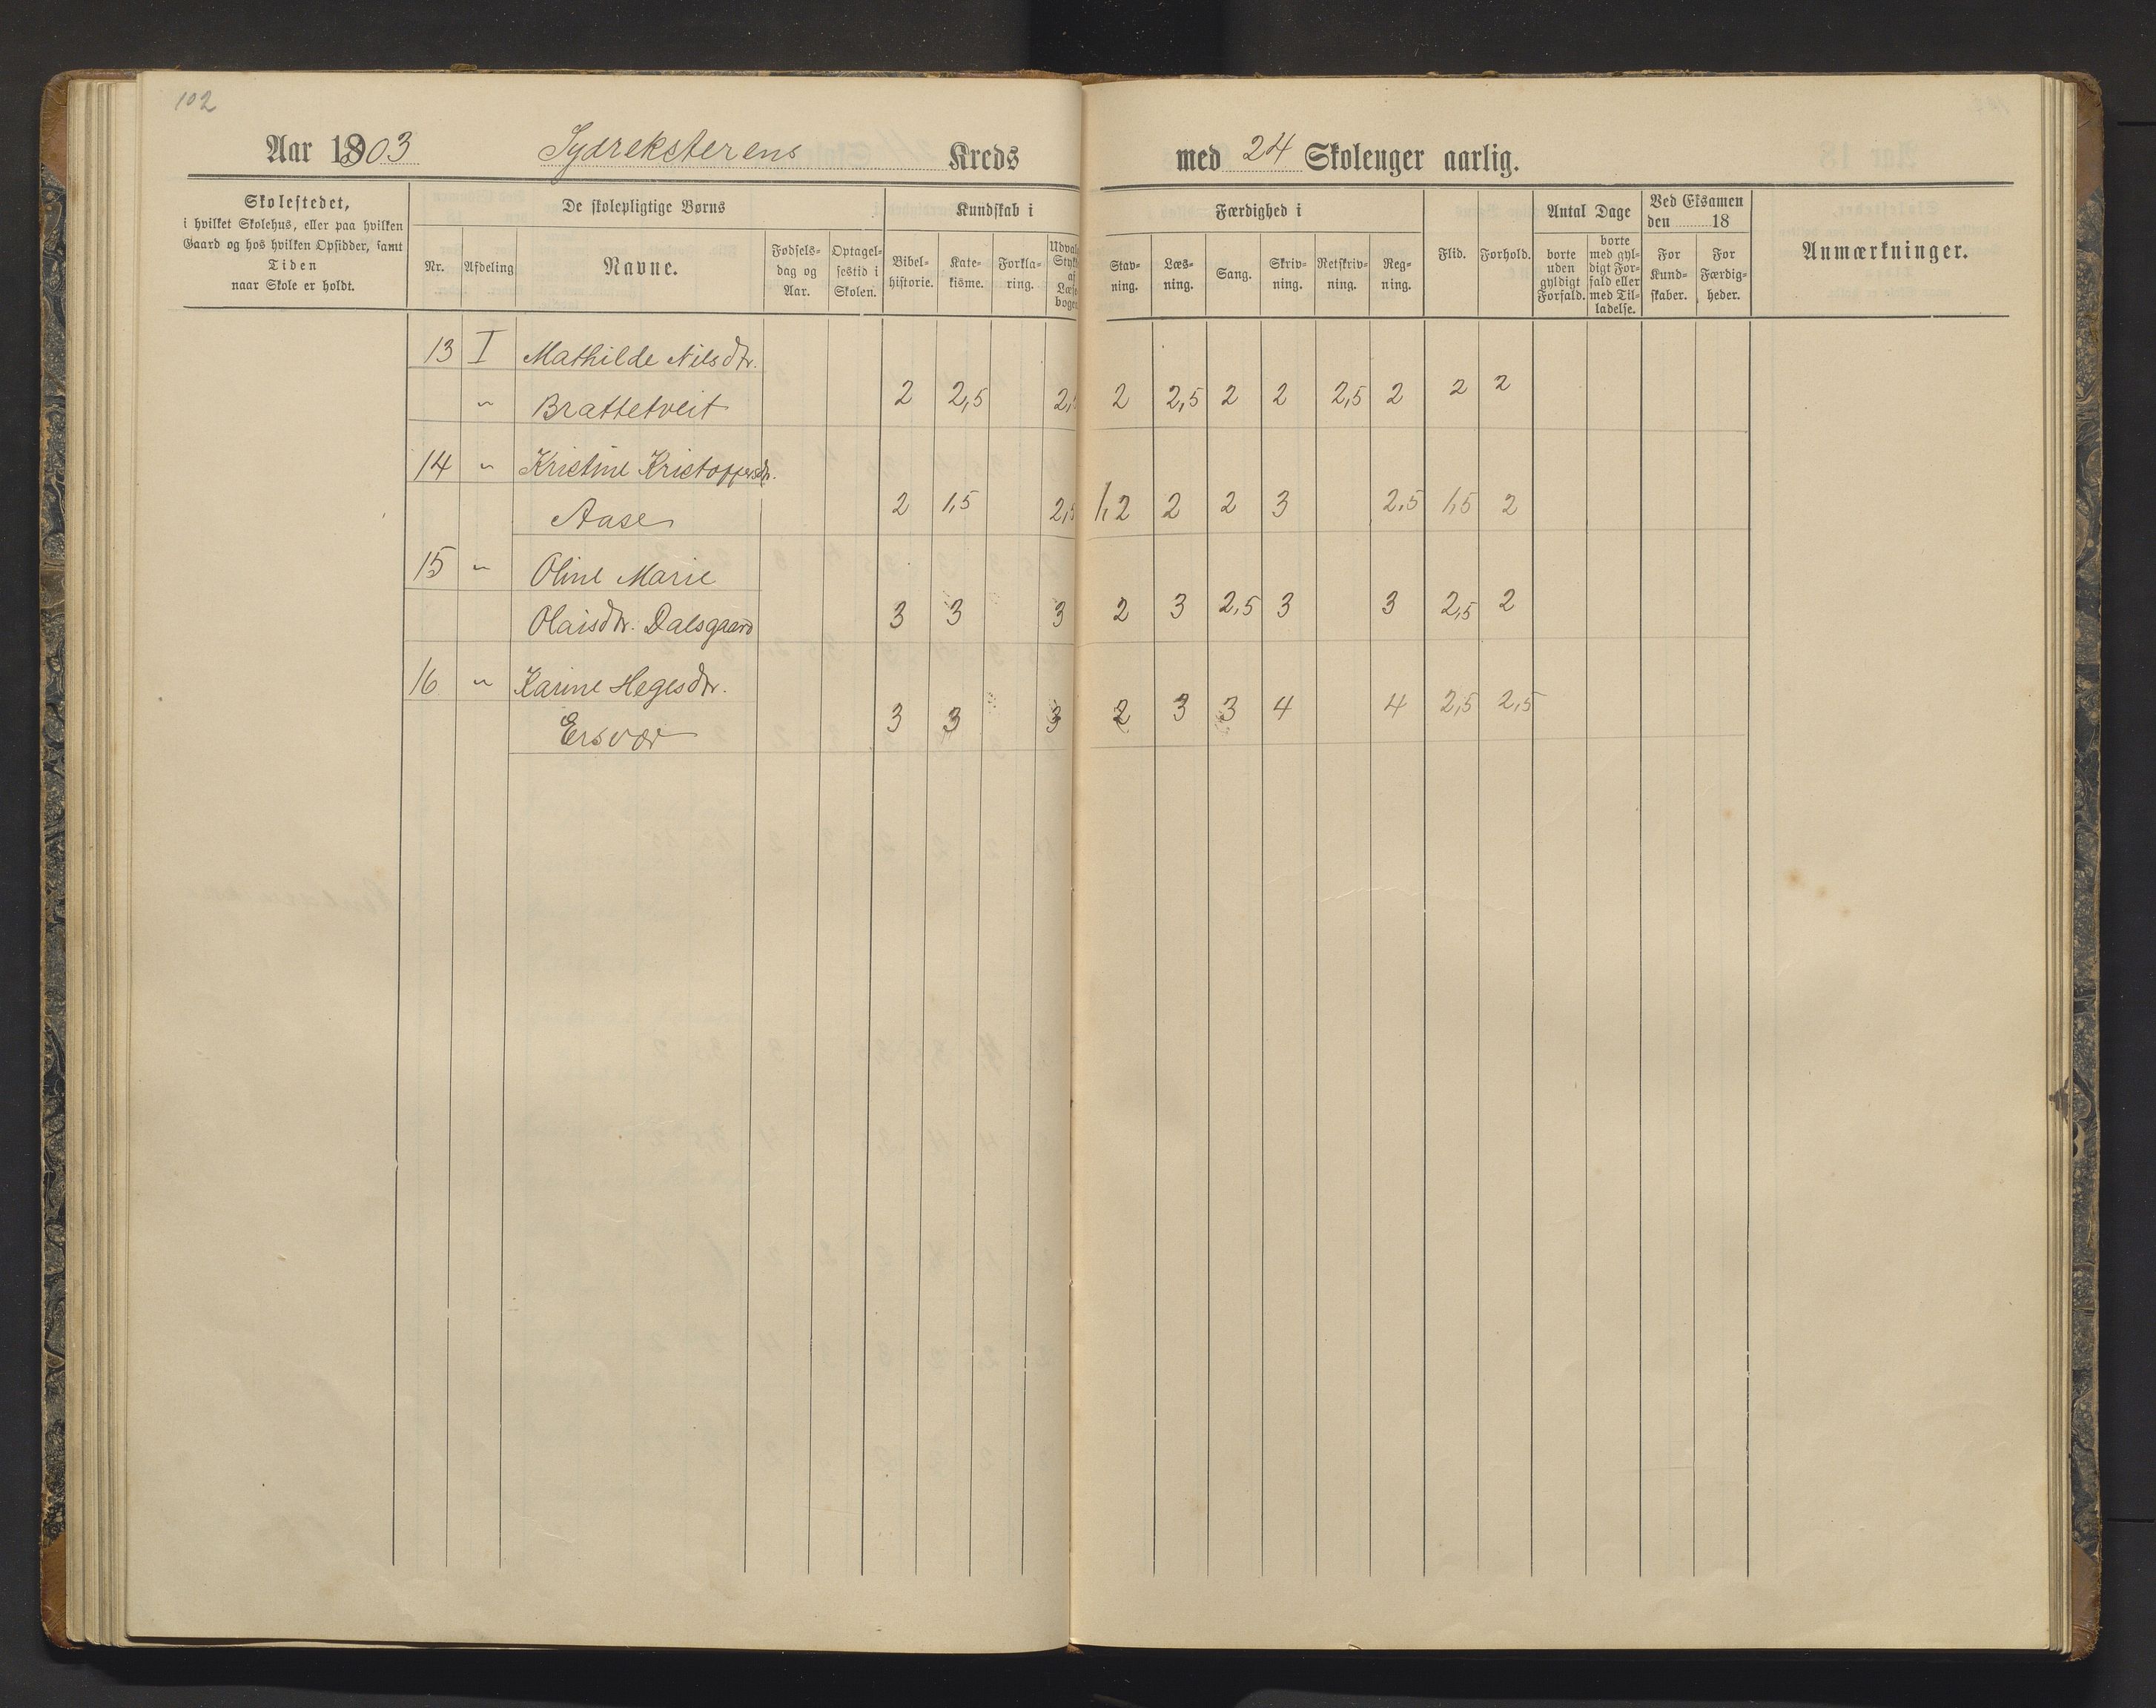 102
Aar 1903 Sydreksterens Kreds med 24 Skoleuger aarlig.
Skolestedet,
i hvilket Skolehus, eller paa hvilken
Gaard og hos hvilken Opsidder, samt
Tiden
naar Skole er holdt.
De skolepligtige Børns
Nr. Afdeling Navne.
Fødsels-
dag og
Aar.
Optagel-
sestid i
Skolen.
Kundskab i
Bibel-
historie.
Kate-
kisme.
Forkla-
ring.
Færdighed i
Stav-
ning.
Læs-
ning.
Sang.
Skriv-
ning.
Retskriv-
ning.
Reg-
ning.
Flid. Forhold.
Antal Dage
borte
uden
gyldigt
Forfald.
borte
med gyl-
digt For-
fald eller
med Til-
ladelse.
Ved Eksamen
den 18
For
Kund-
skaber.
For
Færdig-
heder.
Anmærkninger.
13 I Mathilde Nilsdtr.
" Brattetveit 2 2,5 2,5 2 2,5 2 2 2,5 2 2 2
14 " Kristine Kristoffersdtr.
Aase 2 1,5 2,5 1,2 2 2 3 2,5 1,5 2
15 " Oline Marie
Olaisdtr. Dalsgaard 3 3 3 2 3 2,5 3 3 2,5 2
16 " Karine Hegesdtr.
Ersvær 3 3 3 2 3 3 4 4 2,5 2,5